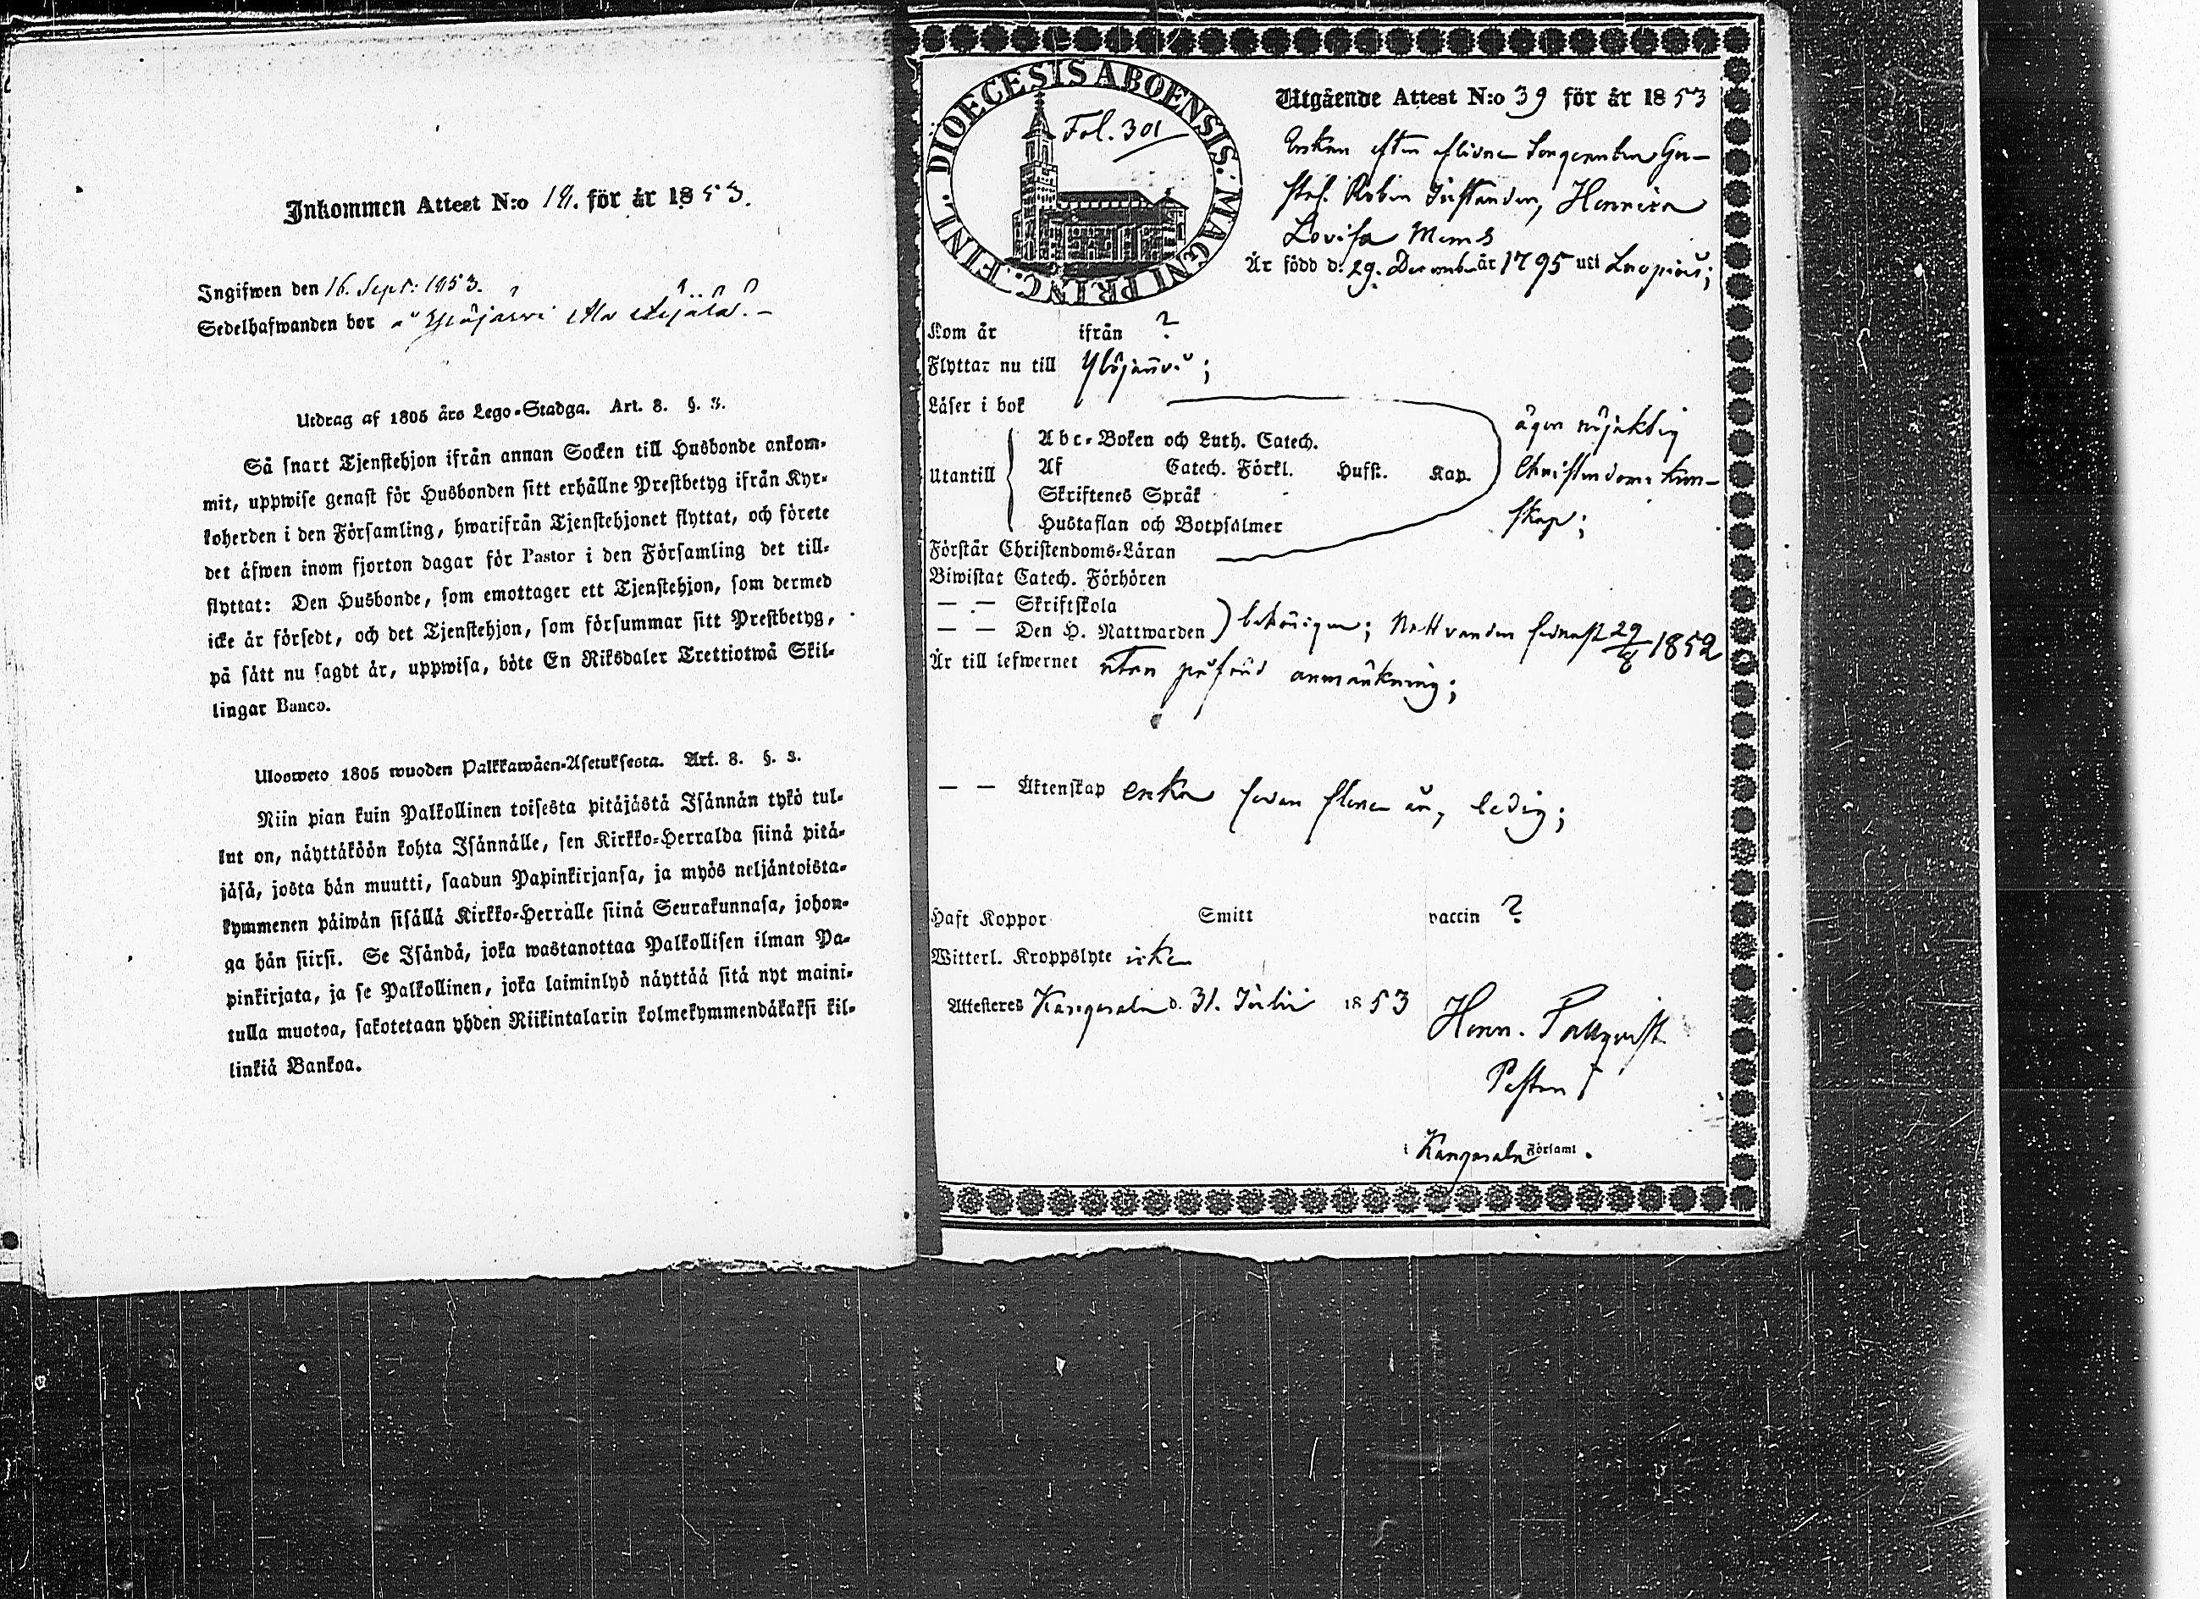 Inkommen Attest N:o 18. för år 1853.
Ingifwen den 16. Sept: 1853.
Sedelhafwanden bor
Utdrag af 1805 års Lego-Stadga. Art. 8. §. 3.
Så snart Tjenstehjon ifrån annan Socken till Husbonde ankom-
mit, uppwise genast för Husbonden sitt erhållne Prestbetyg ifrån Kyr-
koherden i den Församling, hwarifrån Tjenstehjonet flyttat, och förete
det äfwen inom fjorton dagar för Pastor i den Församling det till-
flyttat: Den Husbonde, som emottager ett Tjenstehjon, som dermed
icke är försedt, och det Tjenstehjon, som försummar sitt Prestbetyg,
på sätt nu sagdt är, uppwisa, böte En Riksdaler Trettiotwå Skil-
lingar Banco.
Ulosweto 1805 wuoden Palkkawäen-Asetuksesta. Art. 8. §. 3.
Niin pian kuin Palkollinen toisesta pitäjästä Isännän tykö tul-
lut on, näyttäköön kohta Isännälle, sen Kirkko-Herralda siinä pitä-
jäsä, josta hän muutti, saadun Papinkirjansa, ja myös neljäntoista-
kymmenen päiwän sisällä Kirkko-Herralle siinä Seurakunnasa, johon-
ga hän siirsi. Se Isändä, joka wastanottaa Palkollisen ilman Pa-
pinkirjata, ja se Palkollinen, joka laiminlyö näyttää sitä nyt maini-
tulla muotoa, sakotetaan yhden Riikintalarin kolmekymmendäkaksi kil-
linkiä Bankoa.
DIOECESIS ABOENSIS. MAGNI PRINC. FINL.
Fol. 301
Utgående Attest N:o 39 för år 1853
Enkan efter aflidne Gu-
staf Robin Henrica
Lovisa
Är född d. 29. December år 1795 uti
Kom år ifrån ?
Flyttar nu till Ylöjärvi;
Läser i bok
Utantill
Abc-Boken och Luth. Catech.
Af Catech. Förkl. Hufst. Kap.
Skriftenes Språk
Hustaflan och Botpsalmer
äger nöjaktig
Christendoms kun-
skap;
Förstår Christendoms-Läran
Biwistat Catech. Förhören
— — Skriftskola
— — Den H. Nattwarden behörigen; Nattvarden sednast 29/8 1852
Är till lefwernet utan påförd anmärkning;
— — Äktenskap enka sedan flere år, ledig;
Haft Koppor Smitt vaccin ?
Witterl. Kroppslyte icke
Attesteres Kangasala d. 31. Julii 1853
Henr. Tallqvist
Pastor
i Kangasala Församl.